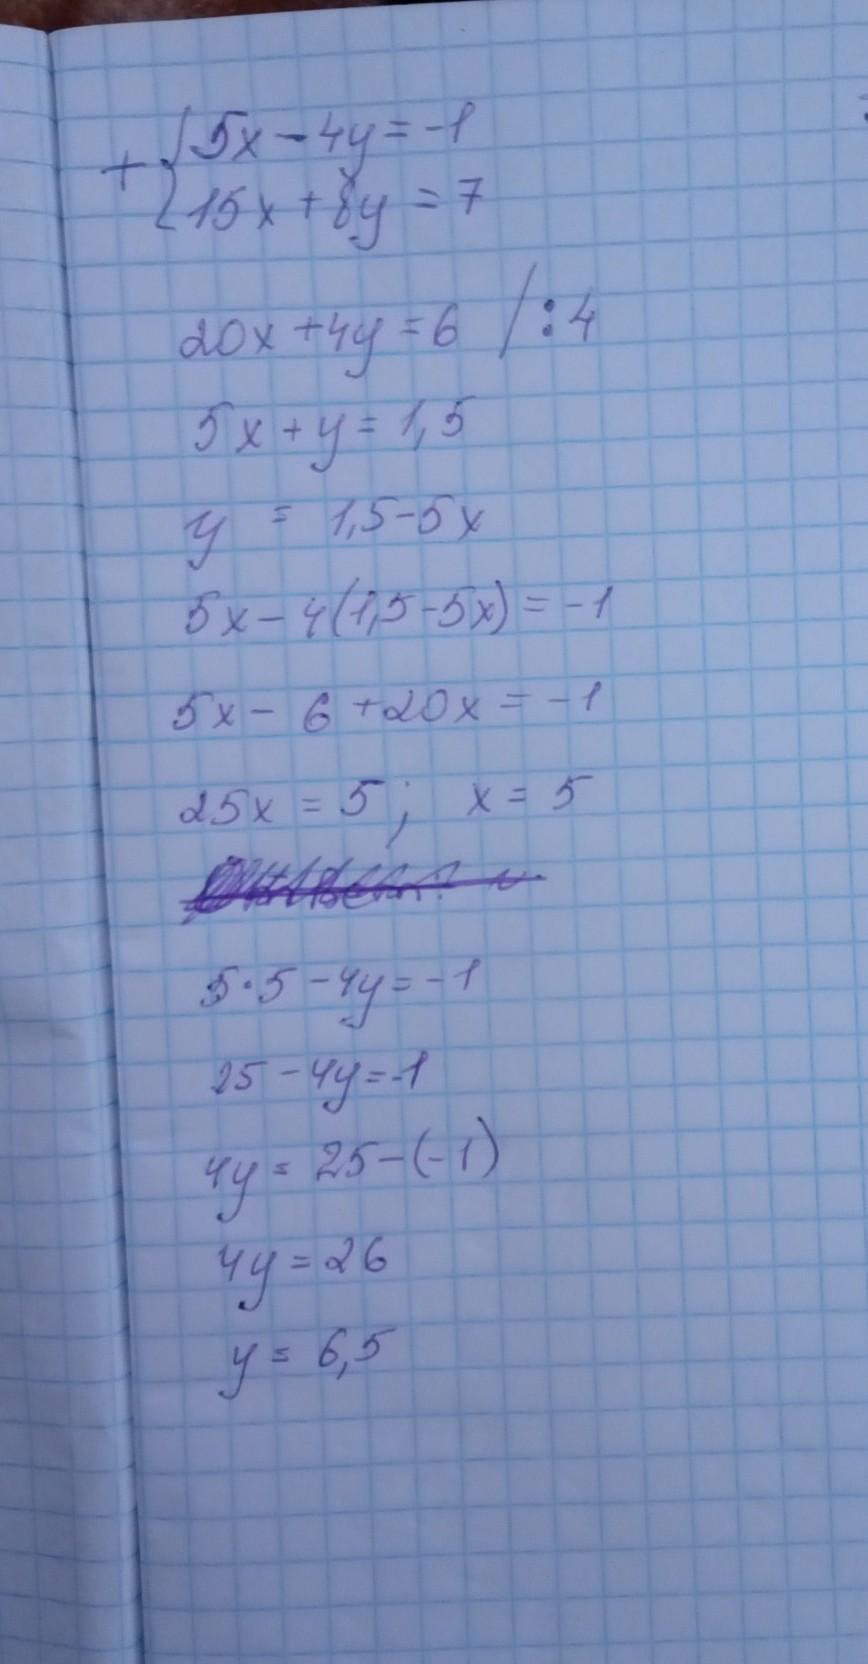 + { 5x - 4y = -1
15x + 8y = 7
20x + 4y = 6 / : 4
5x + y = 1,5
y = 1,5 - 5x
5x - 4(1,5 - 5x) = -1
5x - 6 + 20x = -1
25x = 5 ; x = 5
5·5 - 4y = -1
25 - 4y = -1
4y = 25 - (-1)
4y = 26
y = 6,5